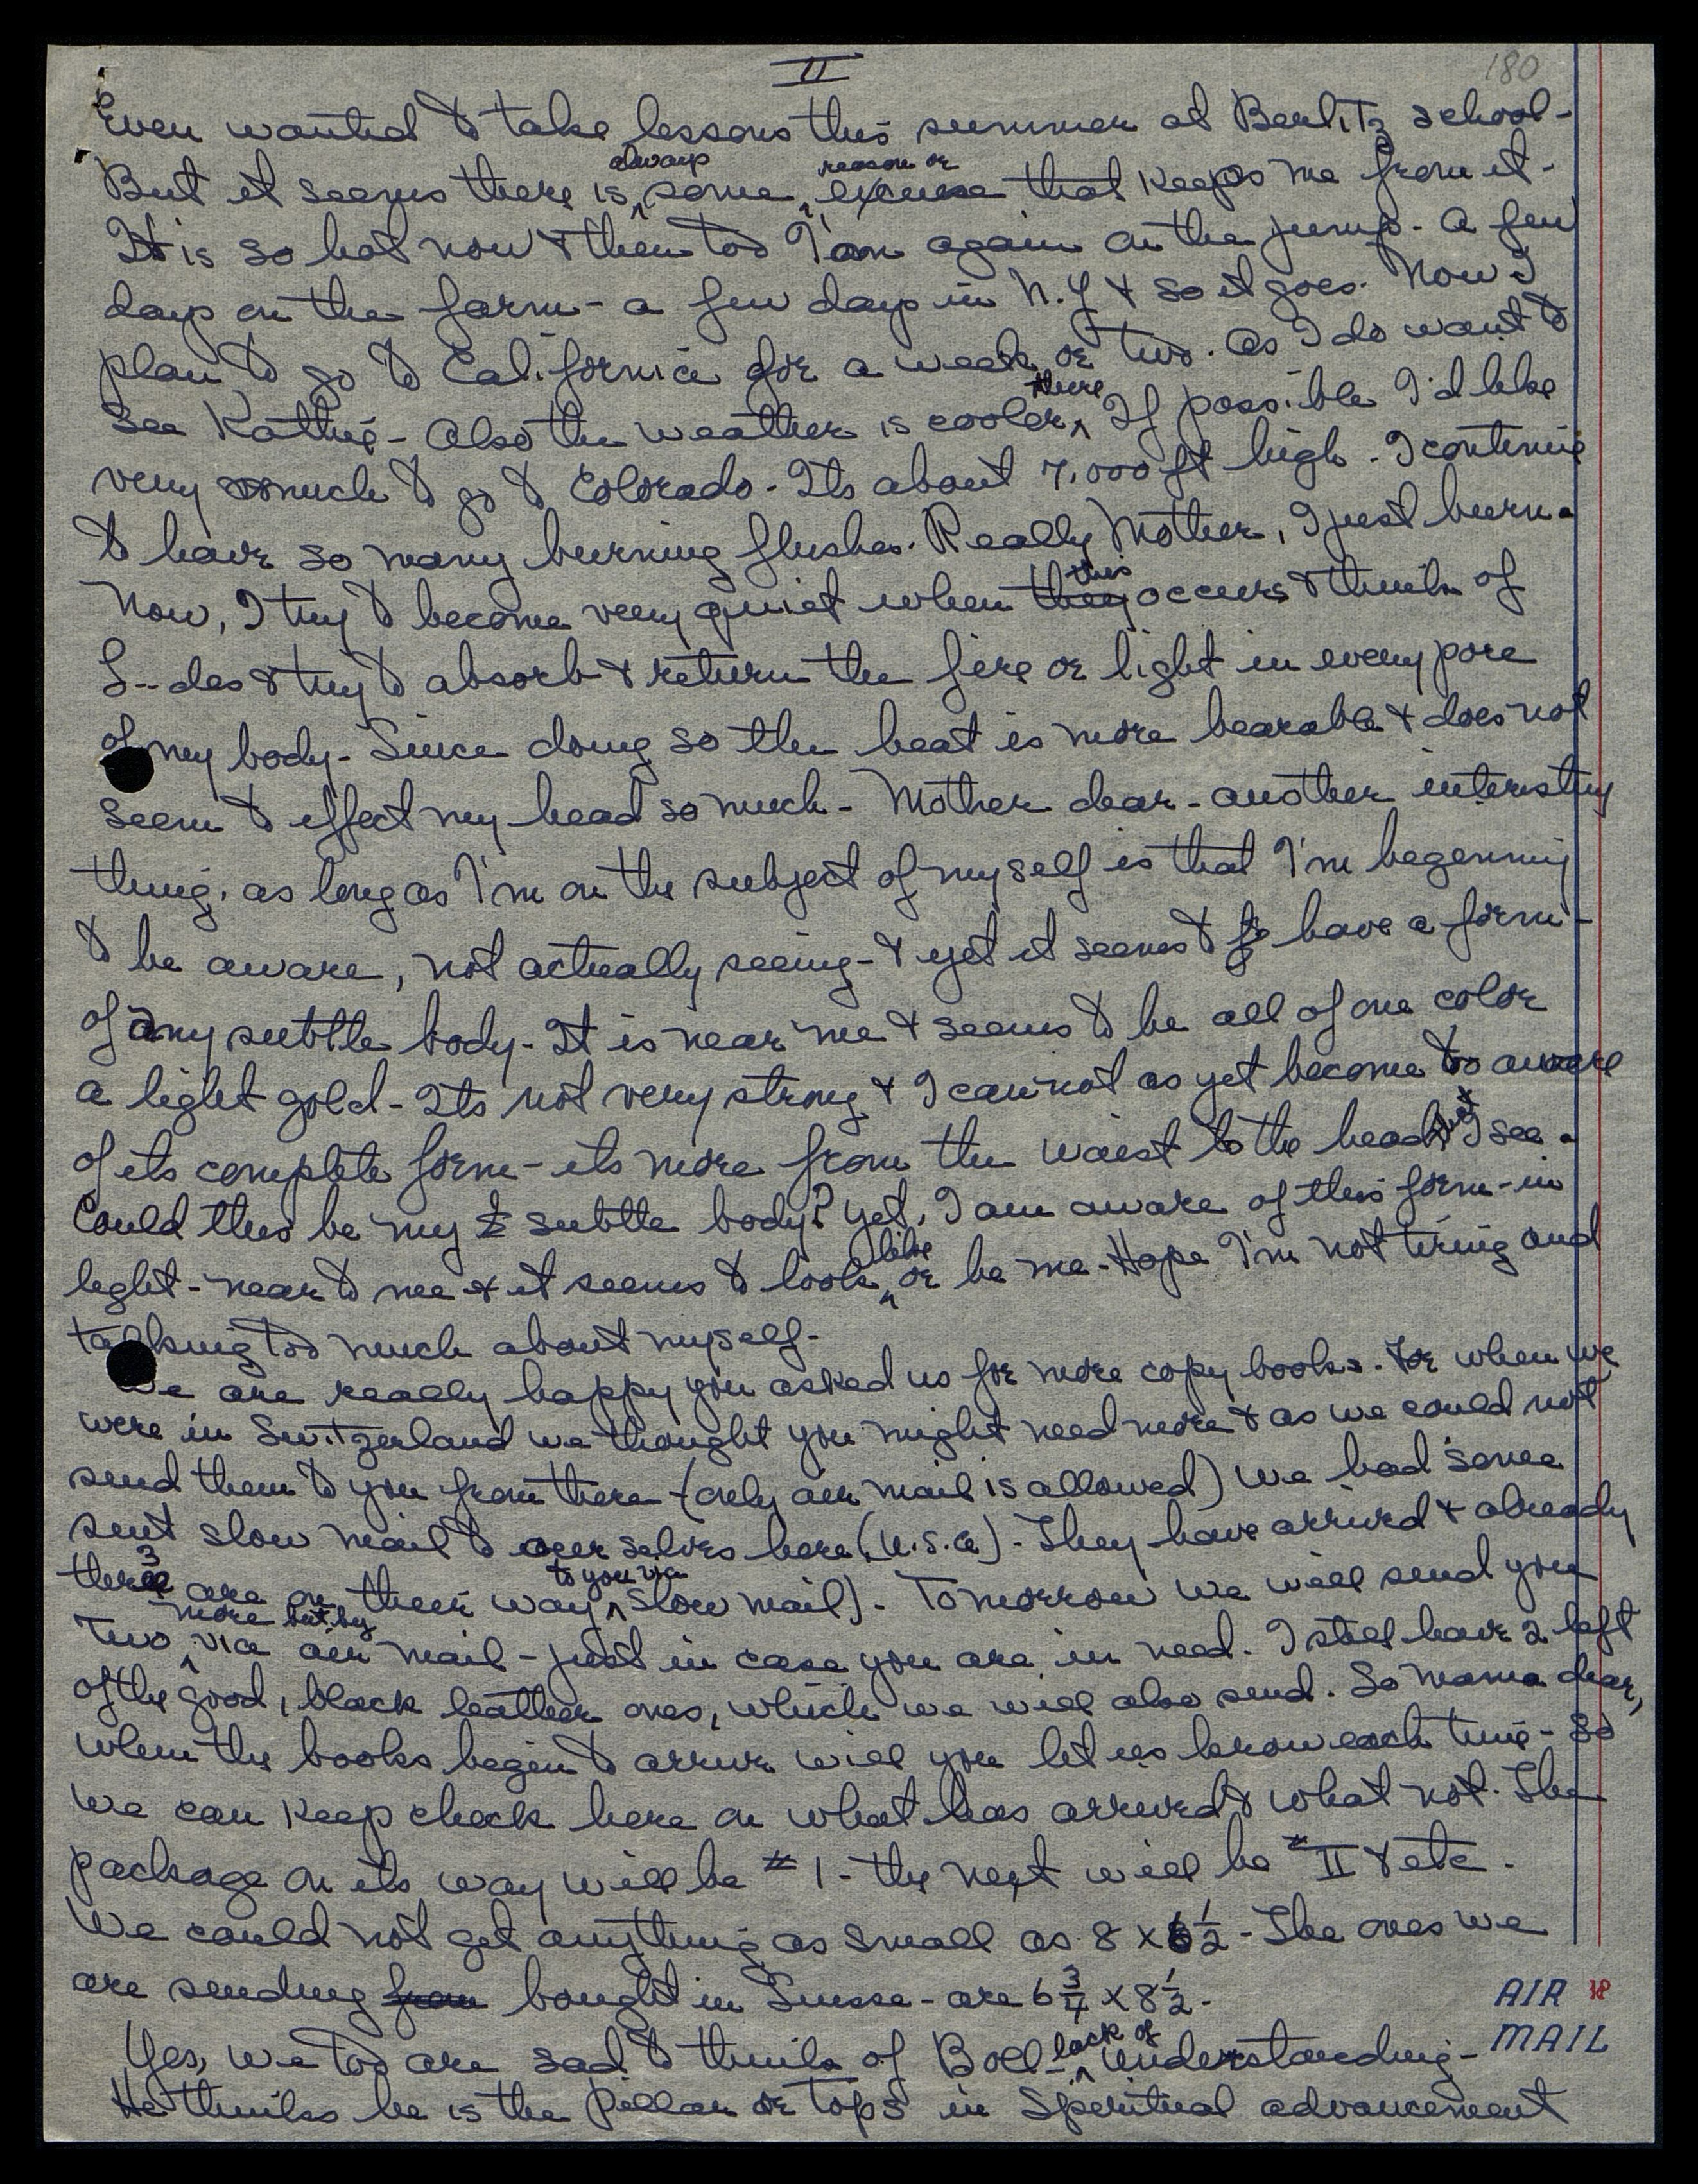 II
180
Even wanted to take lessons this summer at Berlitz school-
But it seems there is always some reason or excuse that keeps me from it-
It is so hot now & then too I am again on the jump. A few
days on the farm - a few days in N.Y & so it goes. Now I
plan to go to California for a week or two. As I do want to
see Kathie - Also the weather is cooler there. If possible I'd like
very much to go to Colorado. Its about 7,000 ft high. I continue
to have so many burning flushes. Really Mother, I just burn.
Now, I try to become very quiet when they this occurs & think of
S--des & try to absorb & return the fire or light in every pore
of my body. Since doing so the heat is more bearable & does not
seem to effect my head so much - Mother dear - another interesting
thing, as long as I'm on the subject of myself is that I'm beginning
to be aware, not actually seeing - & yet it seems to have a form -
of any subtle body - It is near me & seems to be all of one color
a light gold - Its not very strong & I cannot as yet become aware
of its complete form - its more from the waist to the head that I see.
Could this be my subtle body? Yet, I am aware of this form - in
light - near to me & it seems to look like or be me - Hope I'm not tiring and
talking too much about myself.
We are really happy you asked us for more copy books. For when we
were in Switzerland we thought you might need more & as we could not
send them to you from there - (only air mail is allowed) we had some
sent slow mail to our selves here (U.S.A). They have arrived & already
there 3 are on their way to you via slow mail). Tomorrow we will send you
Two more via but by air mail - just in case you are in need. I still have 2 left
of the good, black leather ones, which we will also send. So mama dear,
when the books begin to arrive will you let us know each time - so
we can keep check here on what has arrived & what not. The
package on its way will be #1 - the next will be #II & etc.
We could not get anything as small as 8 x 6 1/2 - The ones we
are sending from bought in Suisse - are 6 3/4 x 8 1/2 -
AIR
MAIL
Yes, we too are sad to think of Boll- lack of understanding -
He thinks he is the pillar or tops in Spiritual advancement